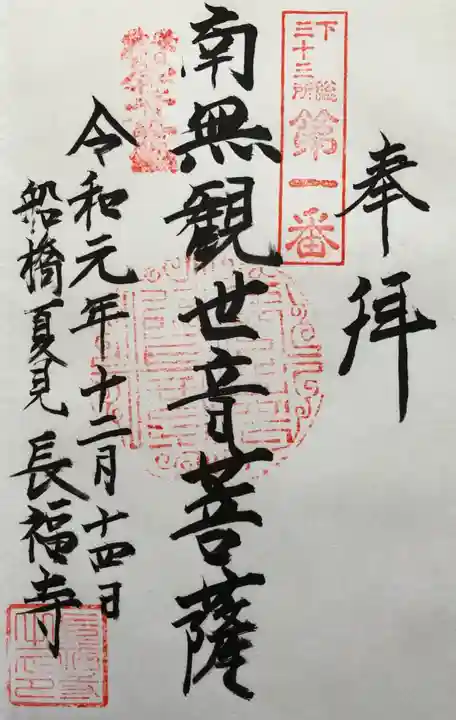 奉拝
下総
三十三所
第一番
南無観世音菩薩
令和元年十二月十四日
船橋夏見長福寺